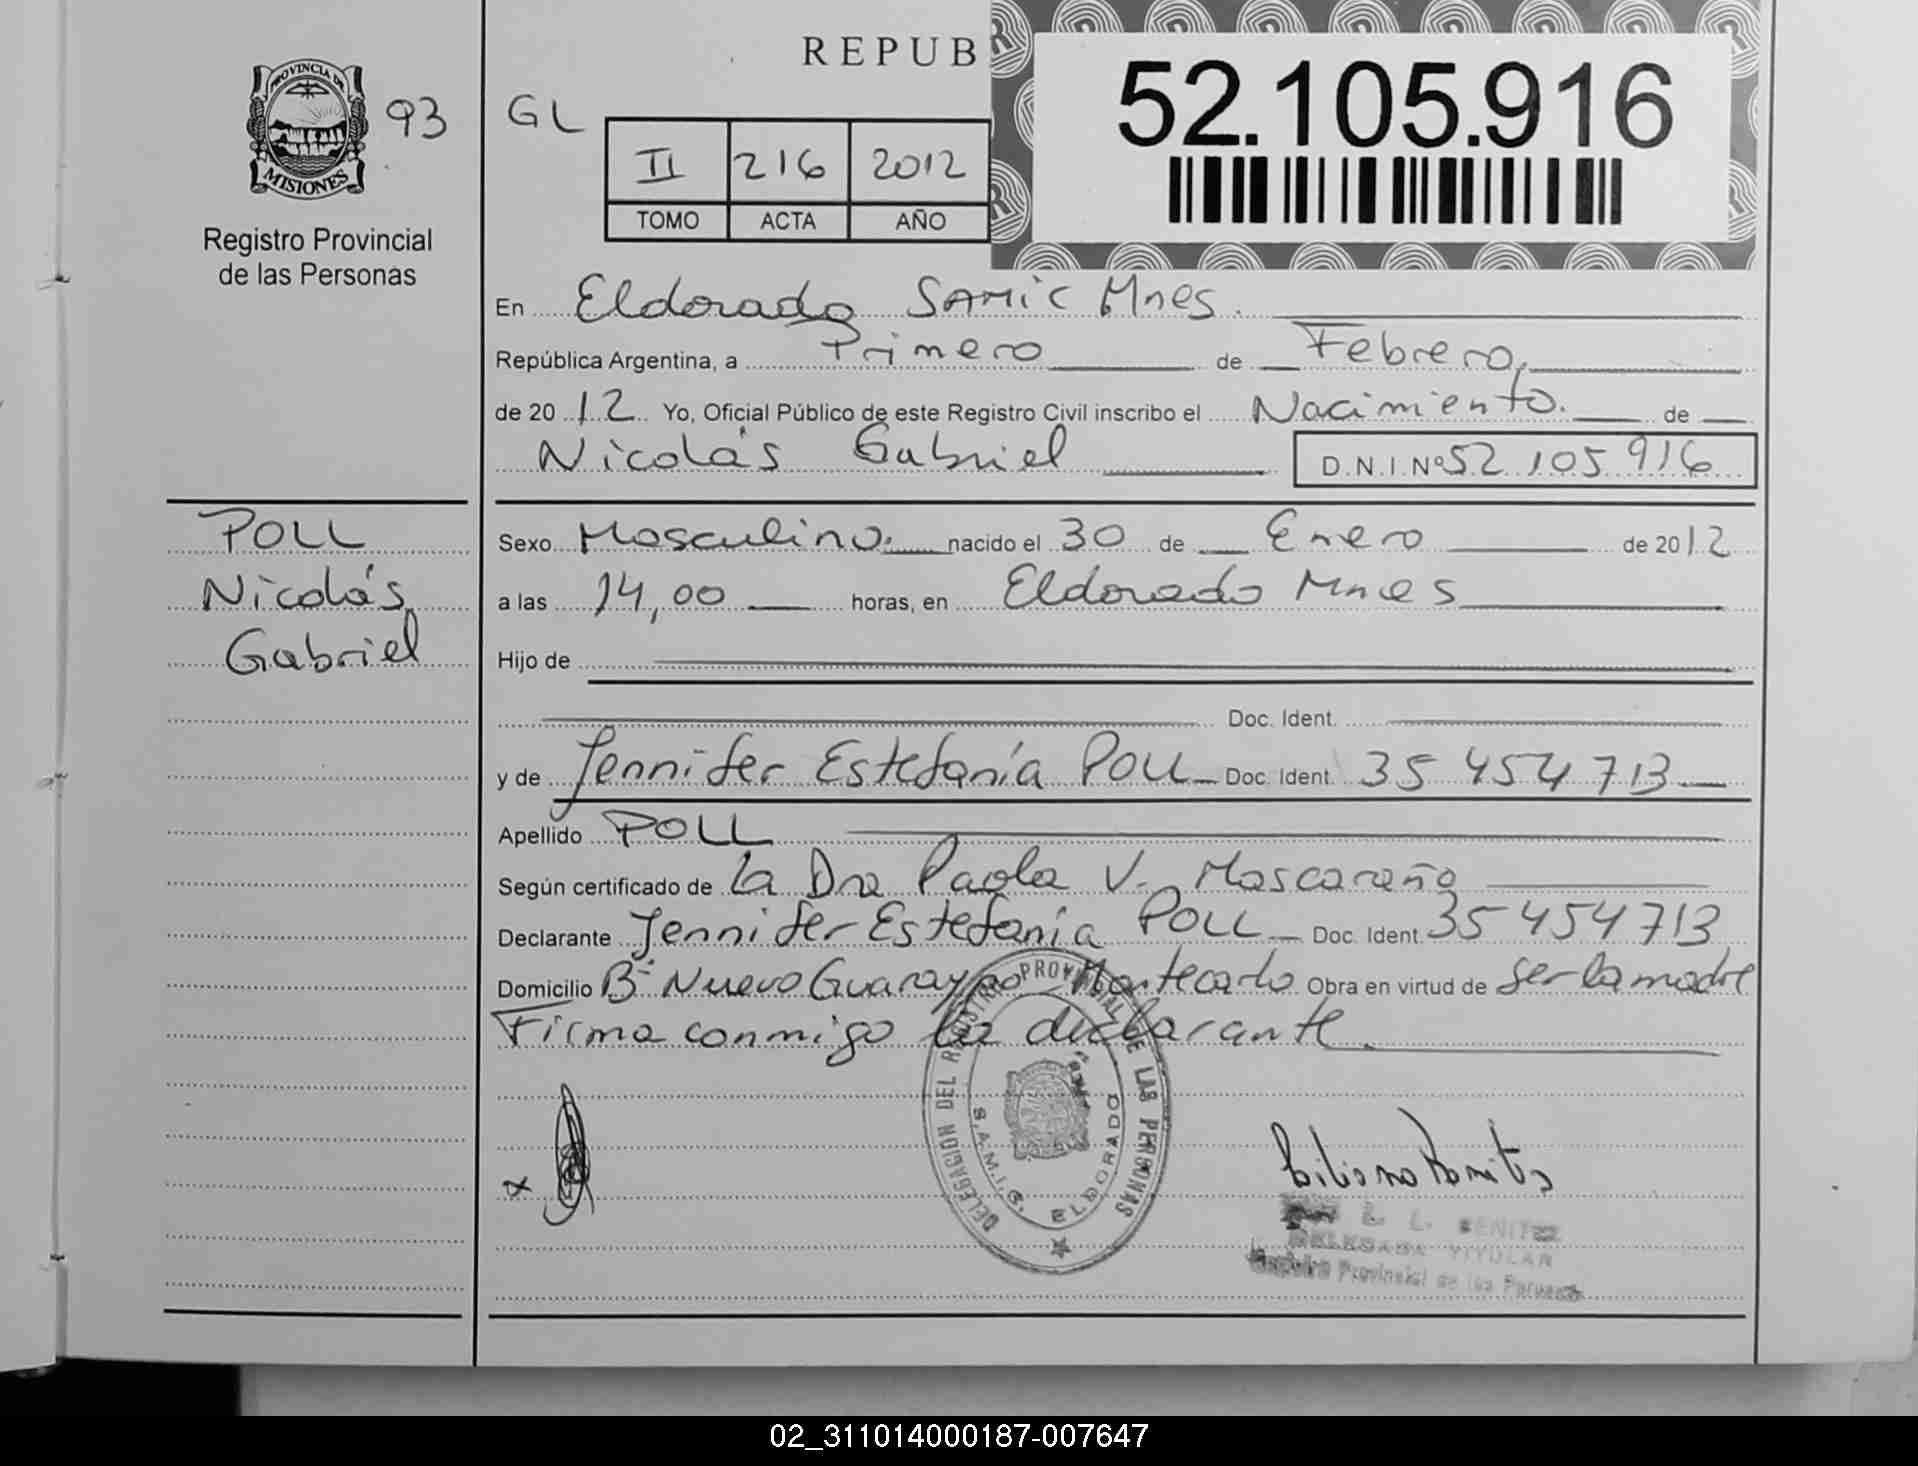 REPUB
52.105.916
PROVINCIA DE
MISIONES
93
GL
II 216 2012
TOMO ACTA AÑO
Registro Provincial
de las Personas
En Eldorado SAMIC Mnes.
República Argentina, a Primero de Febrero,
de 2012 Yo, Oficial Público de este Registro Civil inscribo el Nacimiento. de
Nicolás Gabriel D.N.I. Nº 52 105 916
POLL
Nicolás
Gabriel
Sexo Masculino. nacido el 30 de Enero de 2012
a las 14,00 horas, en Eldorado Mnes
Hijo de
Doc. Ident.
y de Jennifer Estefanía POLL Doc. Ident. 35 454 713
Apellido POLL
Según certificado de la Dra Paola V. Mascaraño
Declarante Jennifer Estefanía POLL Doc. Ident. 35 454 713
Domicilio Bº Nuevo Guaraypo Montecarlo Obra en virtud de ser la madre
Firma conmigo la declarante
DELEGACION DEL REGISTRO PROVINCIAL DE LAS PERSONAS
S.A.M.I.C. ELDORADO
x
E. L. BENITEZ
DELEGADA TITULAR
Registro Provincial de las Personas
02_311014000187-007647